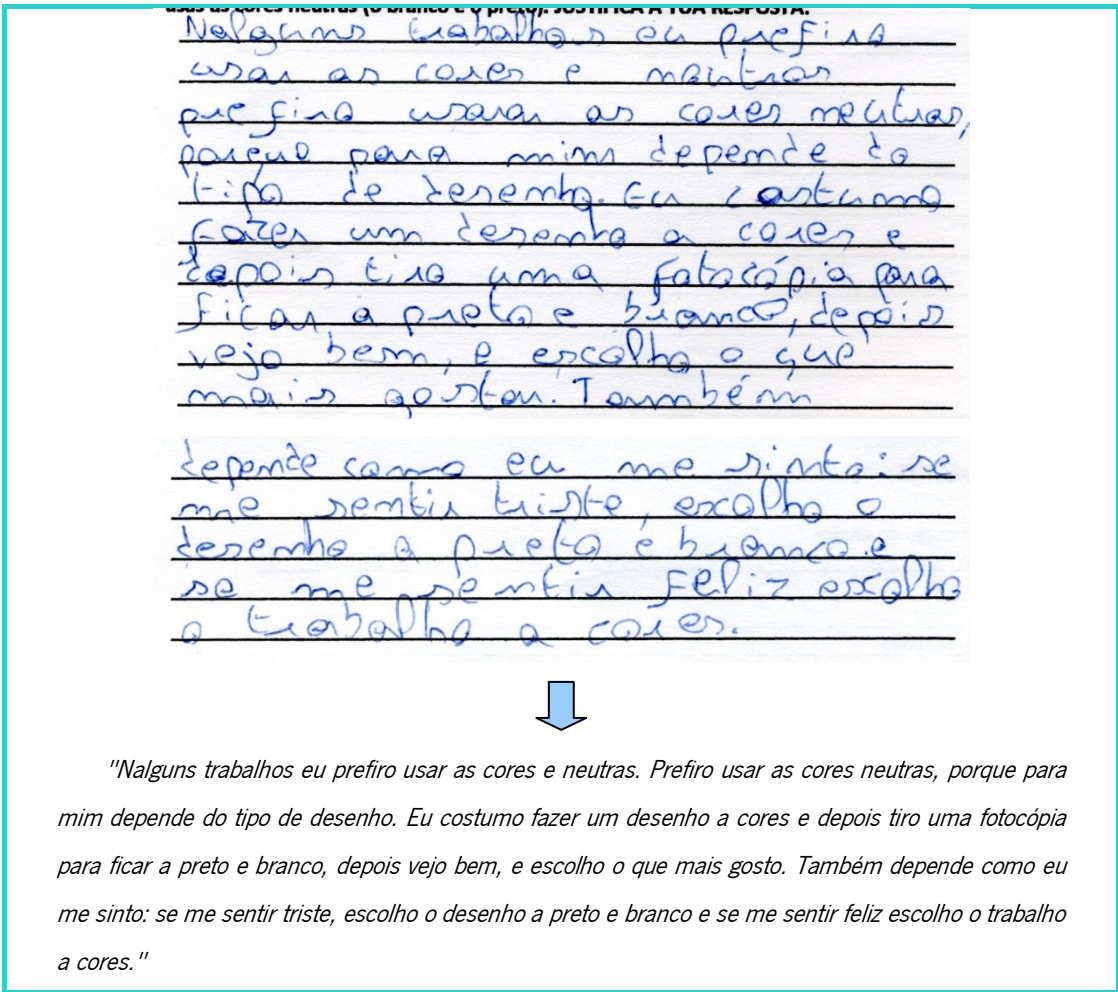 usas as cores neutras (o branco e o preto). JUSTIFICA A TUA RESPOSTA.
Nalguns trabalhos eu prefiro
usar as cores e neutras
prefiro usarar as cores neutras,
porque para mim depende do
tipo de desenho. Eu costumo
fazer um desenho a cores e
depois tiro uma fotocópia para
ficar a preto e branco, depois
vejo bem, e escolho o que
mais gostar. Também
depende como eu me sinto: se
me sentir triste, escolho o
desenho a preto e branco. e
se me sentir feliz escolho
o trabalho a cores.
"Nalguns trabalhos eu prefiro usar as cores e neutras. Prefiro usar as cores neutras, porque para
mim depende do tipo de desenho. Eu costumo fazer um desenho a cores e depois tiro uma fotocópia
para ficar a preto e branco, depois vejo bem, e escolho o que mais gosto. Também depende como eu
me sinto: se me sentir triste, escolho o desenho a preto e branco e se me sentir feliz escolho o trabalho
a cores."